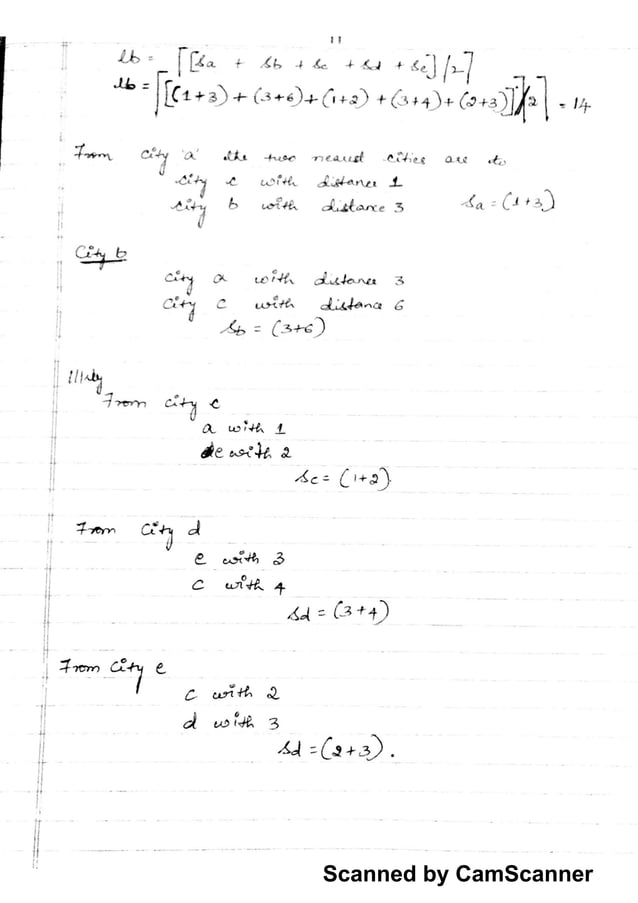 11
lb = ⌈[Sa + Sb + Sc + Sd + Se]/2⌉
lb = ⌈[(1+3) + (3+6) + (1+2) + (3+4) + (2+3)]/2⌉ = 14
From city 'a' the two nearest cities are to
city c with distance 1
city b with distance 3 Sa = (1+3)
City b
city a with distance 3
city c with distance 6
Sb = (3+6)
111rly
From city c
a with 1
e with 2
Sc = (1+2).
From city d
e with 3
c with 4
Sd = (3+4)
From city e
c with 2
d with 3
Sd = (2+3).
Scanned by CamScanner